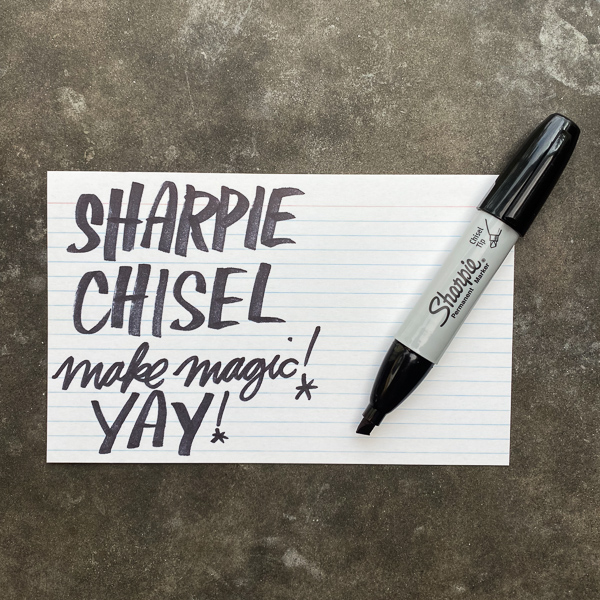 SHARPIE
CHISEL
make magic!
YAY!
Chisel
Tip
Sharpie®
Permanent Marker